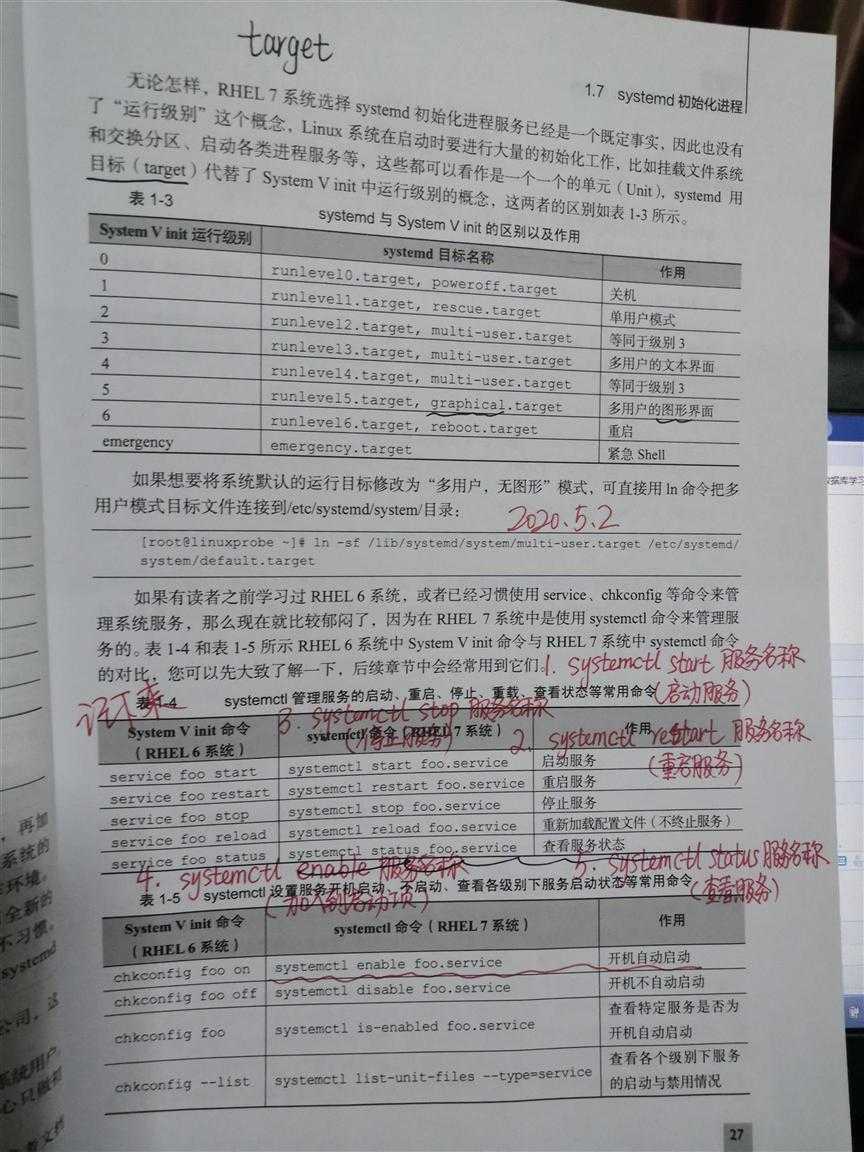 target
1.7 systemd 初始化进程
无论怎样，RHEL 7 系统选择 systemd 初始化进程服务已经是一个既定事实，因此也没有
了“运行级别”这个概念，Linux 系统在启动时要进行大量的初始化工作，比如挂载文件系统
和交换分区、启动各类进程服务等，这些都可以看作是一个一个的单元（Unit），systemd 用
目标（target）代替了 System V init 中运行级别的概念，这两者的区别如表 1-3 所示。
表 1-3 systemd 与 System V init 的区别以及作用
System V init 运行级别 systemd 目标名称 作用
0 runlevel0.target, poweroff.target 关机
1 runlevel1.target, rescue.target 单用户模式
2 runlevel2.target, multi-user.target 等同于级别 3
3 runlevel3.target, multi-user.target 多用户的文本界面
4 runlevel4.target, multi-user.target 等同于级别 3
5 runlevel5.target, graphical.target 多用户的图形界面
6 runlevel6.target, reboot.target 重启
emergency emergency.target 紧急 Shell
如果想要将系统默认的运行目标修改为“多用户，无图形”模式，可直接用 ln 命令把多
用户模式目标文件连接到/etc/systemd/system/目录：
2020.5.2
[root@linuxprobe ~]# ln -sf /lib/systemd/system/multi-user.target /etc/systemd/
system/default.target
如果有读者之前学习过 RHEL 6 系统，或者已经习惯使用 service、chkconfig 等命令来管
理系统服务，那么现在就比较郁闷了，因为在 RHEL 7 系统中是使用 systemctl 命令来管理服
务的。表 1-4 和表 1-5 所示 RHEL 6 系统中 System V init 命令与 RHEL 7 系统中 systemctl 命令
的对比，您可以先大致了解一下，后续章节中会经常用到它们。
1. systemctl start 服务名称
(启动服务)
记下来
表 1-4 systemctl 管理服务的启动、重启、停止、重载、查看状态等常用命令
3. systemctl stop 服务名称
(停止服务)
2. systemctl restart 服务名称
(重启服务)
System V init 命令
（RHEL 6 系统） systemctl 命令（RHEL 7 系统） 作用
service foo start systemctl start foo.service 启动服务
service foo restart systemctl restart foo.service 重启服务
service foo stop systemctl stop foo.service 停止服务
service foo reload systemctl reload foo.service 重新加载配置文件（不终止服务）
service foo status systemctl status foo.service 查看服务状态
4. systemctl enable 服务名称
(加入到启动项)
5. systemctl status 服务名称
(查看服务)
表 1-5 systemctl 设置服务开机启动、不启动、查看各级别下服务启动状态等常用命令
System V init 命令
（RHEL 6 系统） systemctl 命令（RHEL 7 系统） 作用
chkconfig foo on systemctl enable foo.service 开机自动启动
chkconfig foo off systemctl disable foo.service 开机不自动启动
chkconfig foo systemctl is-enabled foo.service 查看特定服务是否为
开机自动启动
chkconfig --list systemctl list-unit-files --type=service 查看各个级别下服务
的启动与禁用情况
27
，再加
系统的
环境。
全新的
不习惯。
systemd
公司，这
系统用户